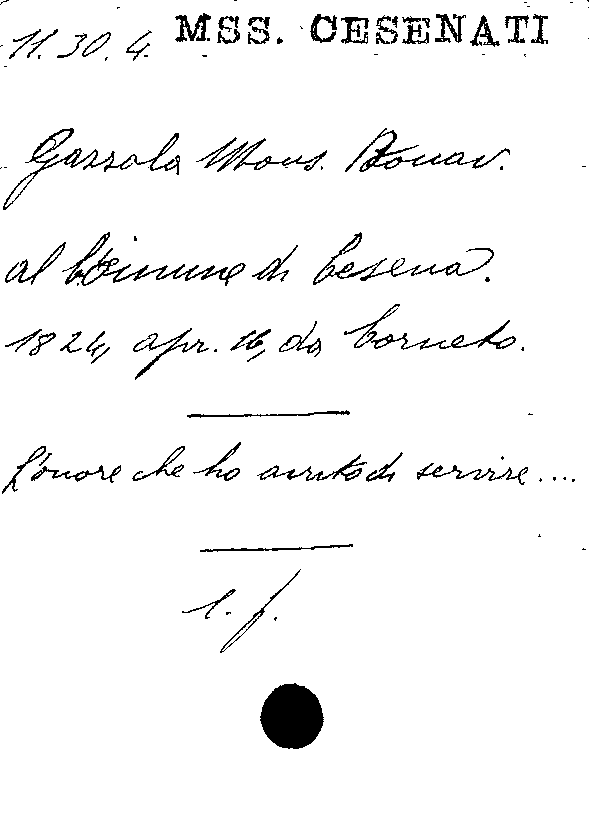 11.30.4. MSS. CESENATI
Gazzola Mons. Bonav.
al Comune di Cesena.
1824, apr. 16, da Corneto.
L'onore che ho avuto di servire....
l. f.